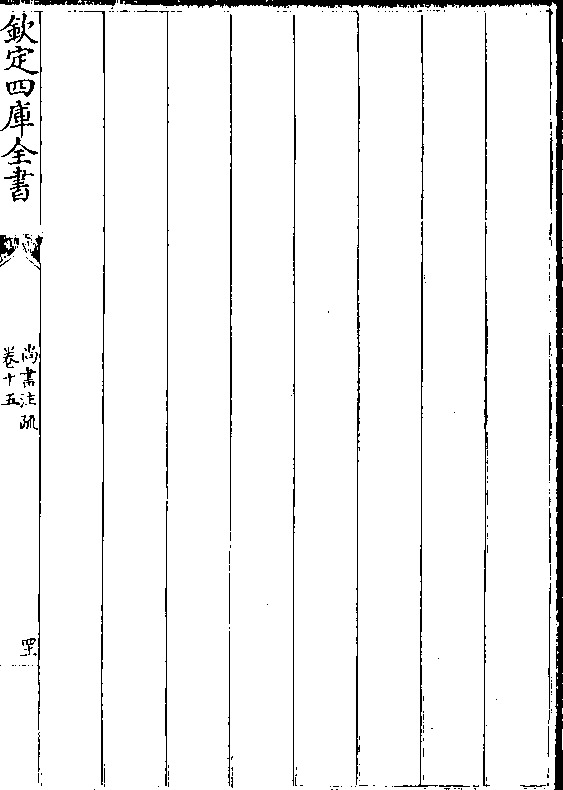 欽定四庫全書
尚書注疏
卷十五